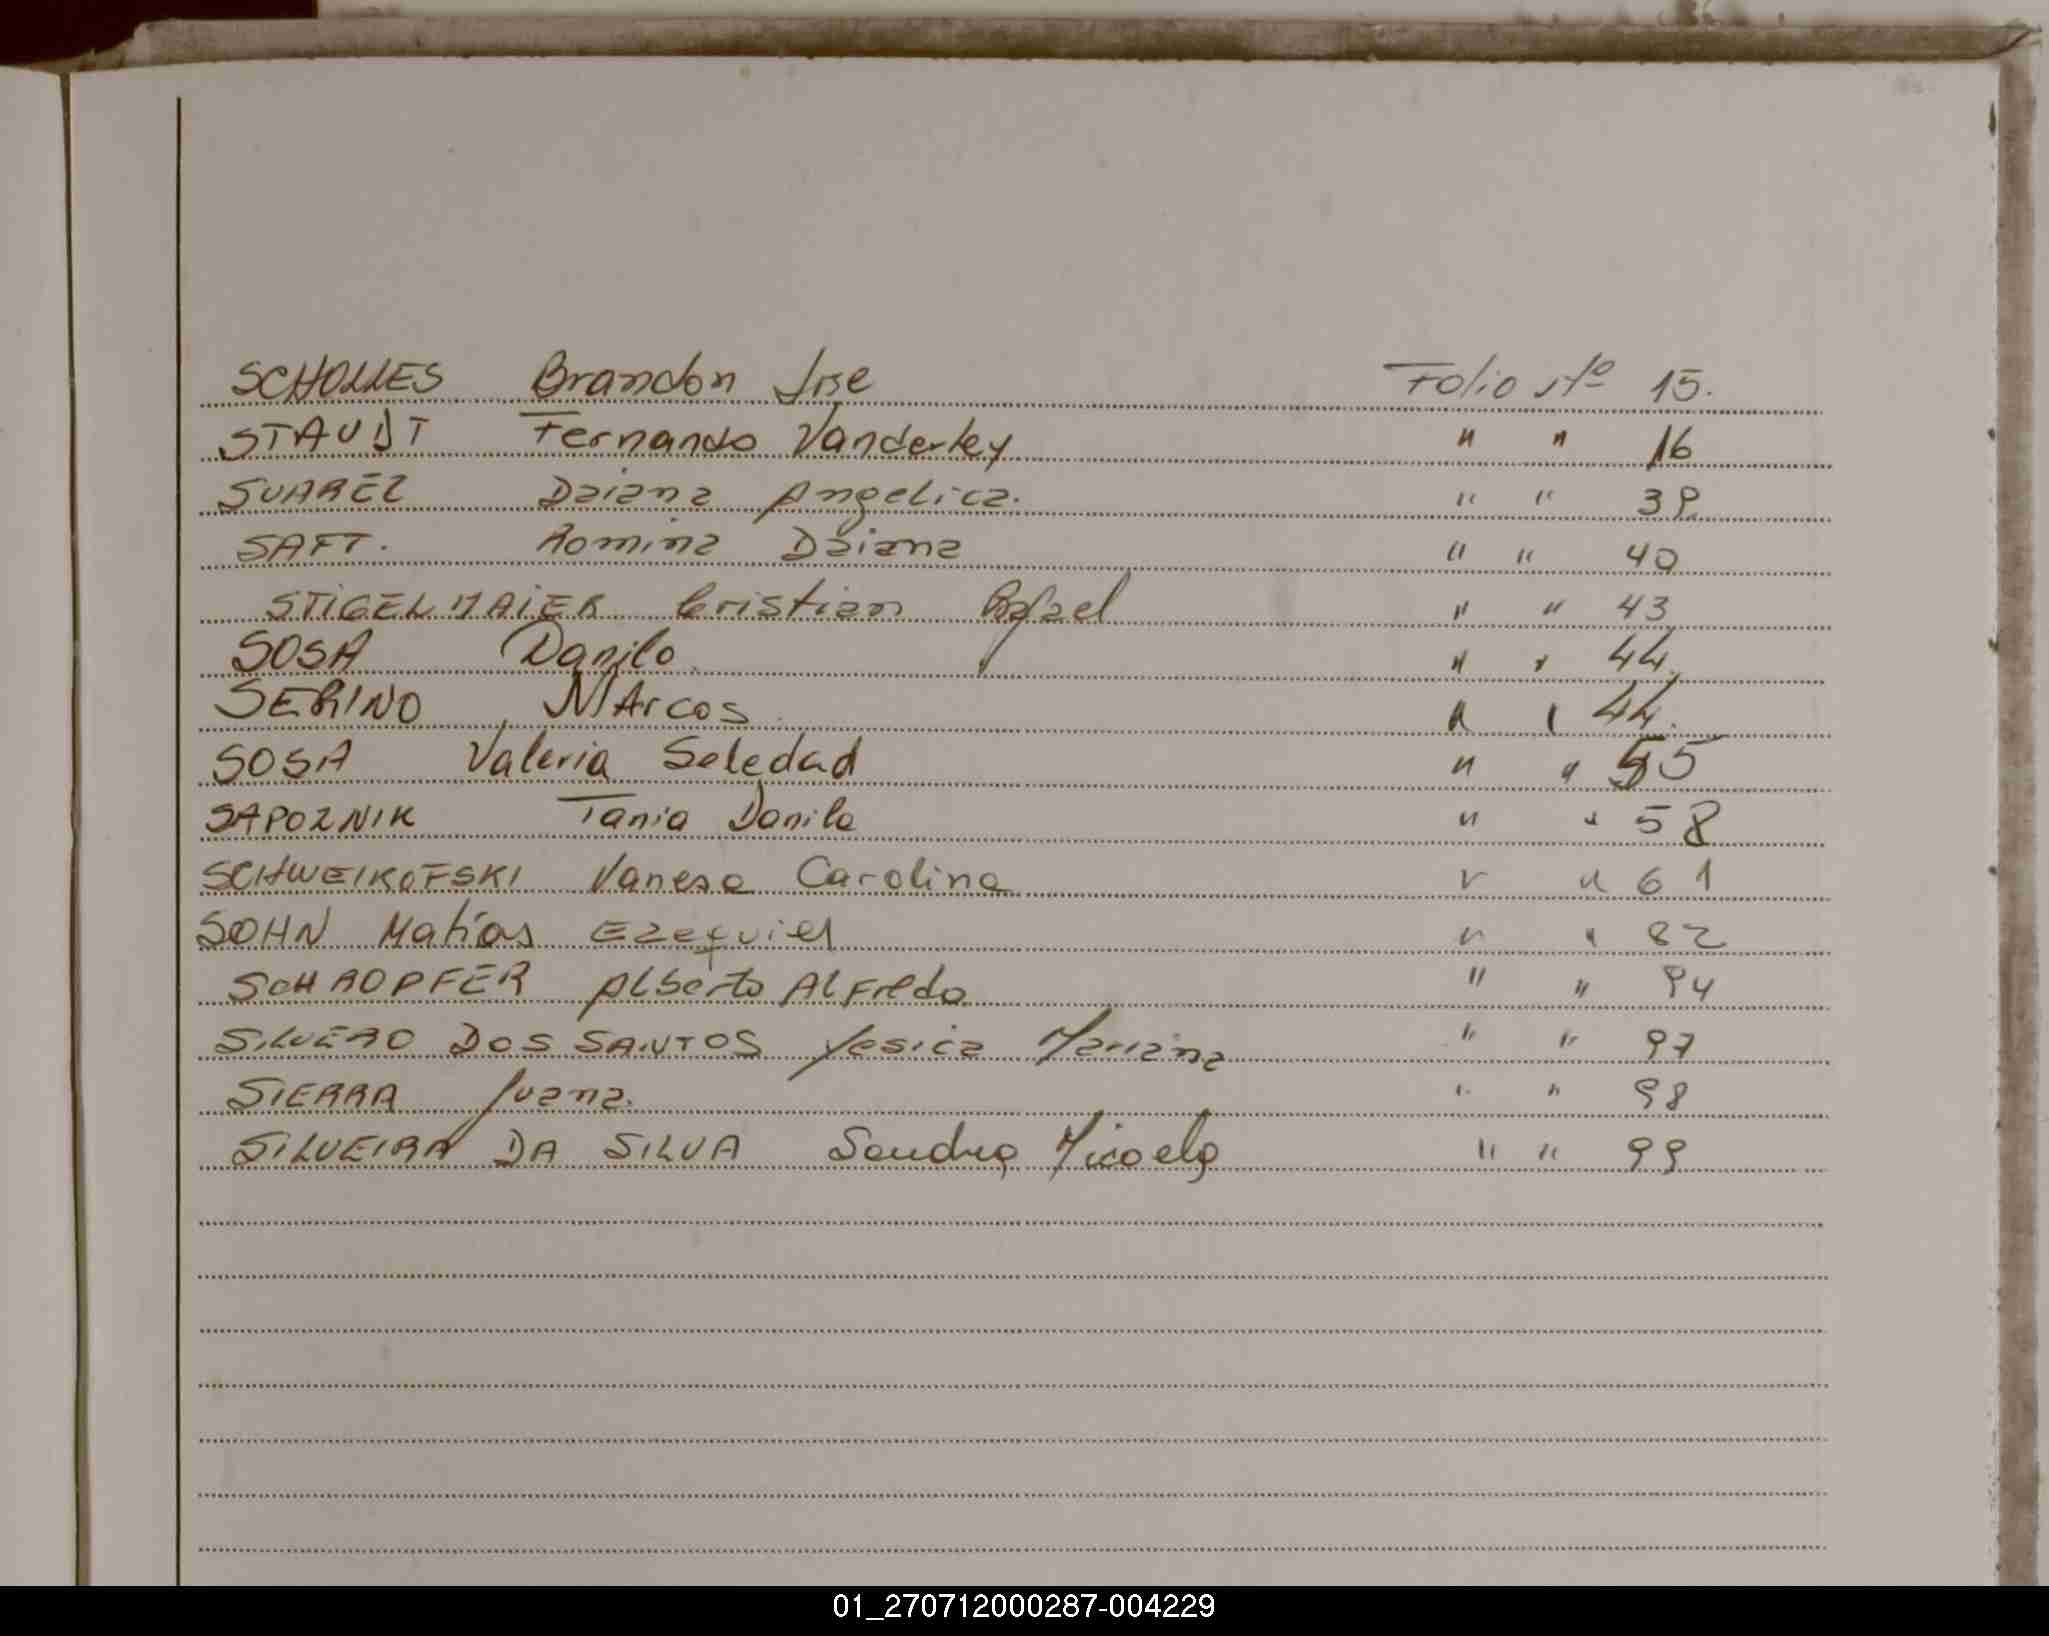 SCHOLLES Brandon José Folio Nº 15.
STAUDT Fernando Vanderley " " 16
SUAREZ Daiana Angelica. " " 39
SAFT. Romina Daiana " " 40
STIGELMAIER Cristian Rafael " " 43
SOSA Danilo " " 44.
SERINO MArcos " " 44.
SOSA Valeria Soledad " " 55
SAPOZNIK Tania Danila " " 58
SCHWEIKOFSKI Vanesa Carolina " " 61
SOHN Matías Ezequiel " " 82
SCHROPFER Alberto Alfredo " " 94
SILVERO DOS SANTOS Yesica Mariana " " 97
SIERRA Juana. " " 98
SILVEIRA DA SILVA Sandra Micaela " " 99
01_270712000287-004229